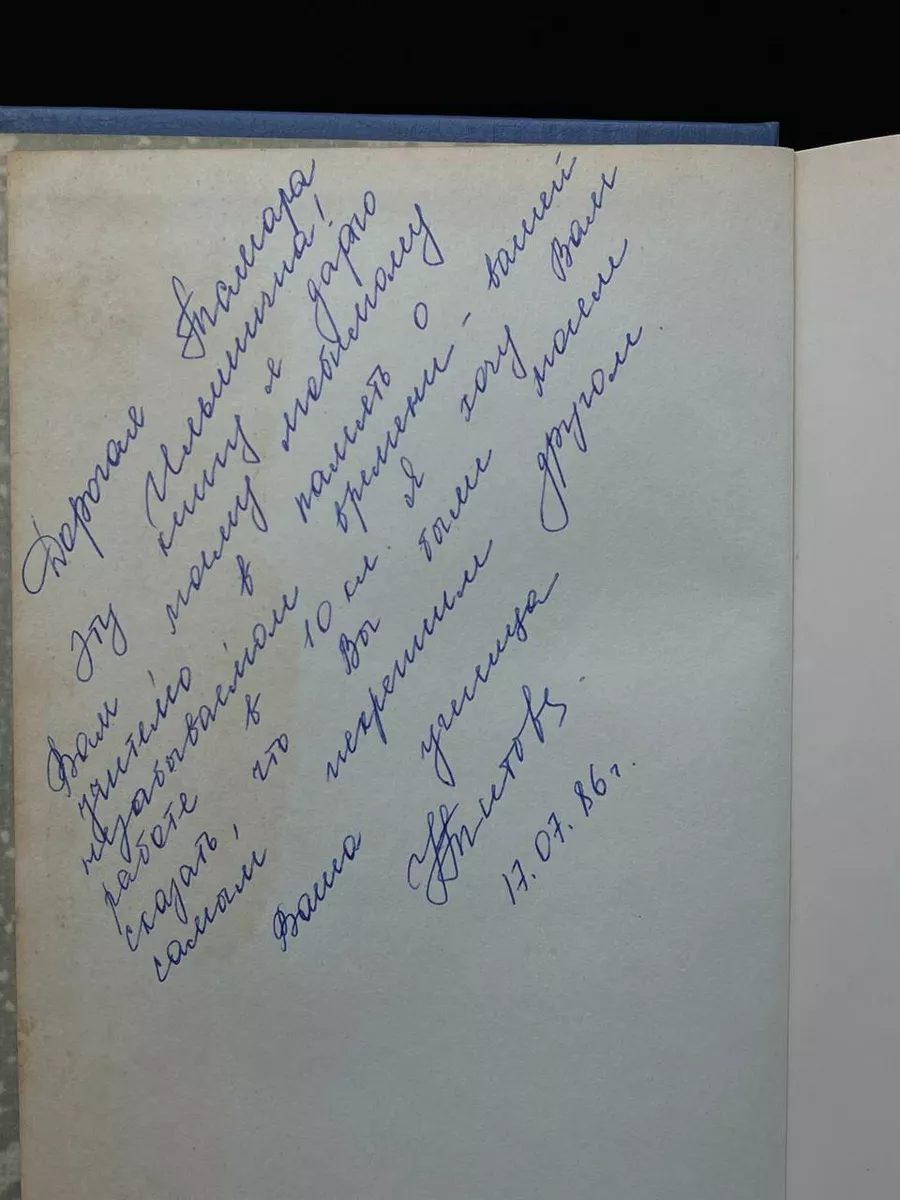 Дорогая Тамара
Ильинична!
Эту книгу я дарю
Вам, моему любимому
учителю в память о
незабываемом времени - вашей
работе в 10 кл. Я хочу Вам
сказать, что Вы были моим
самым искренним другом.
Ваша ученица
17.07.86г.